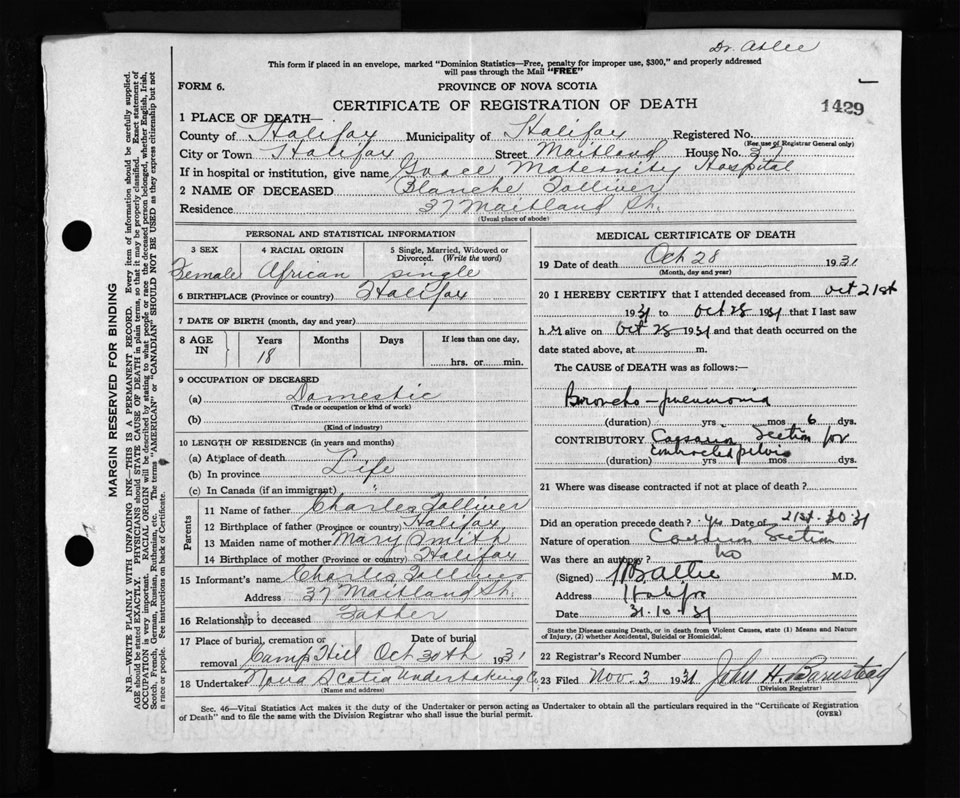 Dr. Atlee
This form if placed in an envelope, marked "Dominion Statistics—Free, penalty for improper use, $300," and properly addressed
will pass through the Mail "FREE"
FORM 6.
PROVINCE OF NOVA SCOTIA
CERTIFICATE OF REGISTRATION OF DEATH
1429
1 PLACE OF DEATH—
County of Halifax Municipality of Halifax Registered No.
(For use of Registrar General only)
City or Town Halifax Street Maitland House No. 37
If in hospital or institution, give name Grace Maternity Hospital
2 NAME OF DECEASED Blanche Tolliver
Residence 37 Maitland St.
(Usual place of abode)
PERSONAL AND STATISTICAL INFORMATION
3 SEX 4 RACIAL ORIGIN 5 Single, Married, Widowed or Divorced. (Write the word)
Female African single
6 BIRTHPLACE (Province or country) Halifax
7 DATE OF BIRTH (month, day and year)
8 AGE IN Years Months Days If less than one day,
18 hrs. or min.
9 OCCUPATION OF DECEASED
(a) Domestic
(Trade or occupation or kind of work)
(b)
(Kind of industry)
10 LENGTH OF RESIDENCE (in years and months)
(a) At place of death
(b) In province Life
(c) In Canada (if an immigrant) "
Parents
11 Name of father Charles Tolliver
12 Birthplace of father (Province or country) Halifax
13 Maiden name of mother Mary Smith
14 Birthplace of mother (Province or country) Halifax
15 Informant's name Charles Tolliver
Address 37 Maitland St.
16 Relationship to deceased Father
17 Place of burial, cremation or removal Date of burial
Camp Hill Oct 30th 1931
18 Undertaker Nova Scotia Undertaking Co
(Name and address)
MEDICAL CERTIFICATE OF DEATH
19 Date of death Oct 28 1931
(Month, day and year)
20 I HEREBY CERTIFY that I attended deceased from Oct 21st
1931 to Oct 28 1931 that I last saw
h er alive on Oct 28 1931 and that death occurred on the
date stated above, at m.
The CAUSE of DEATH was as follows:—
Broncho-pneumonia
(duration) yrs mos 6 dys.
CONTRIBUTORY Section for
contracted pelvis
(duration) yrs mos dys.
21 Where was disease contracted if not at place of death?
Did an operation precede death? yes Date of 21st-30-31
Nature of operation Section
Was there an autopsy? no
(Signed) M.D.
Address Halifax
Date 31-10-31
State the Disease causing Death, or in death from Violent Causes, state (1) Means and Nature
of Injury, (2) whether Accidental, Suicidal or Homicidal.
22 Registrar's Record Number
23 Filed Nov. 3 1931 John H. Barnstead
(Division Registrar)
Sec. 46—Vital Statistics Act makes it the duty of the Undertaker or person acting as Undertaker to obtain all the particulars required in the "Certificate of Registration
of Death" and to file the same with the Division Registrar who shall issue the burial permit.
(OVER)
MARGIN RESERVED FOR BINDING
N.B.—WRITE PLAINLY WITH UNFADING INK—THIS IS A PERMANENT RECORD. Every item of information should be carefully supplied.
AGE should be stated EXACTLY. PHYSICIANS should STATE CAUSE OF DEATH in plain terms, so that it may be properly classified. Exact statement of
OCCUPATION is very important. RACIAL ORIGIN will be described by stating to what people or race the deceased person belonged, whether English, Irish,
Scotch, French, German, Russian, Ruthenian, etc. The terms "AMERICAN" or "CANADIAN" SHOULD NOT BE USED as they express citizenship but not
a race or people. See instructions on back of Certificate.